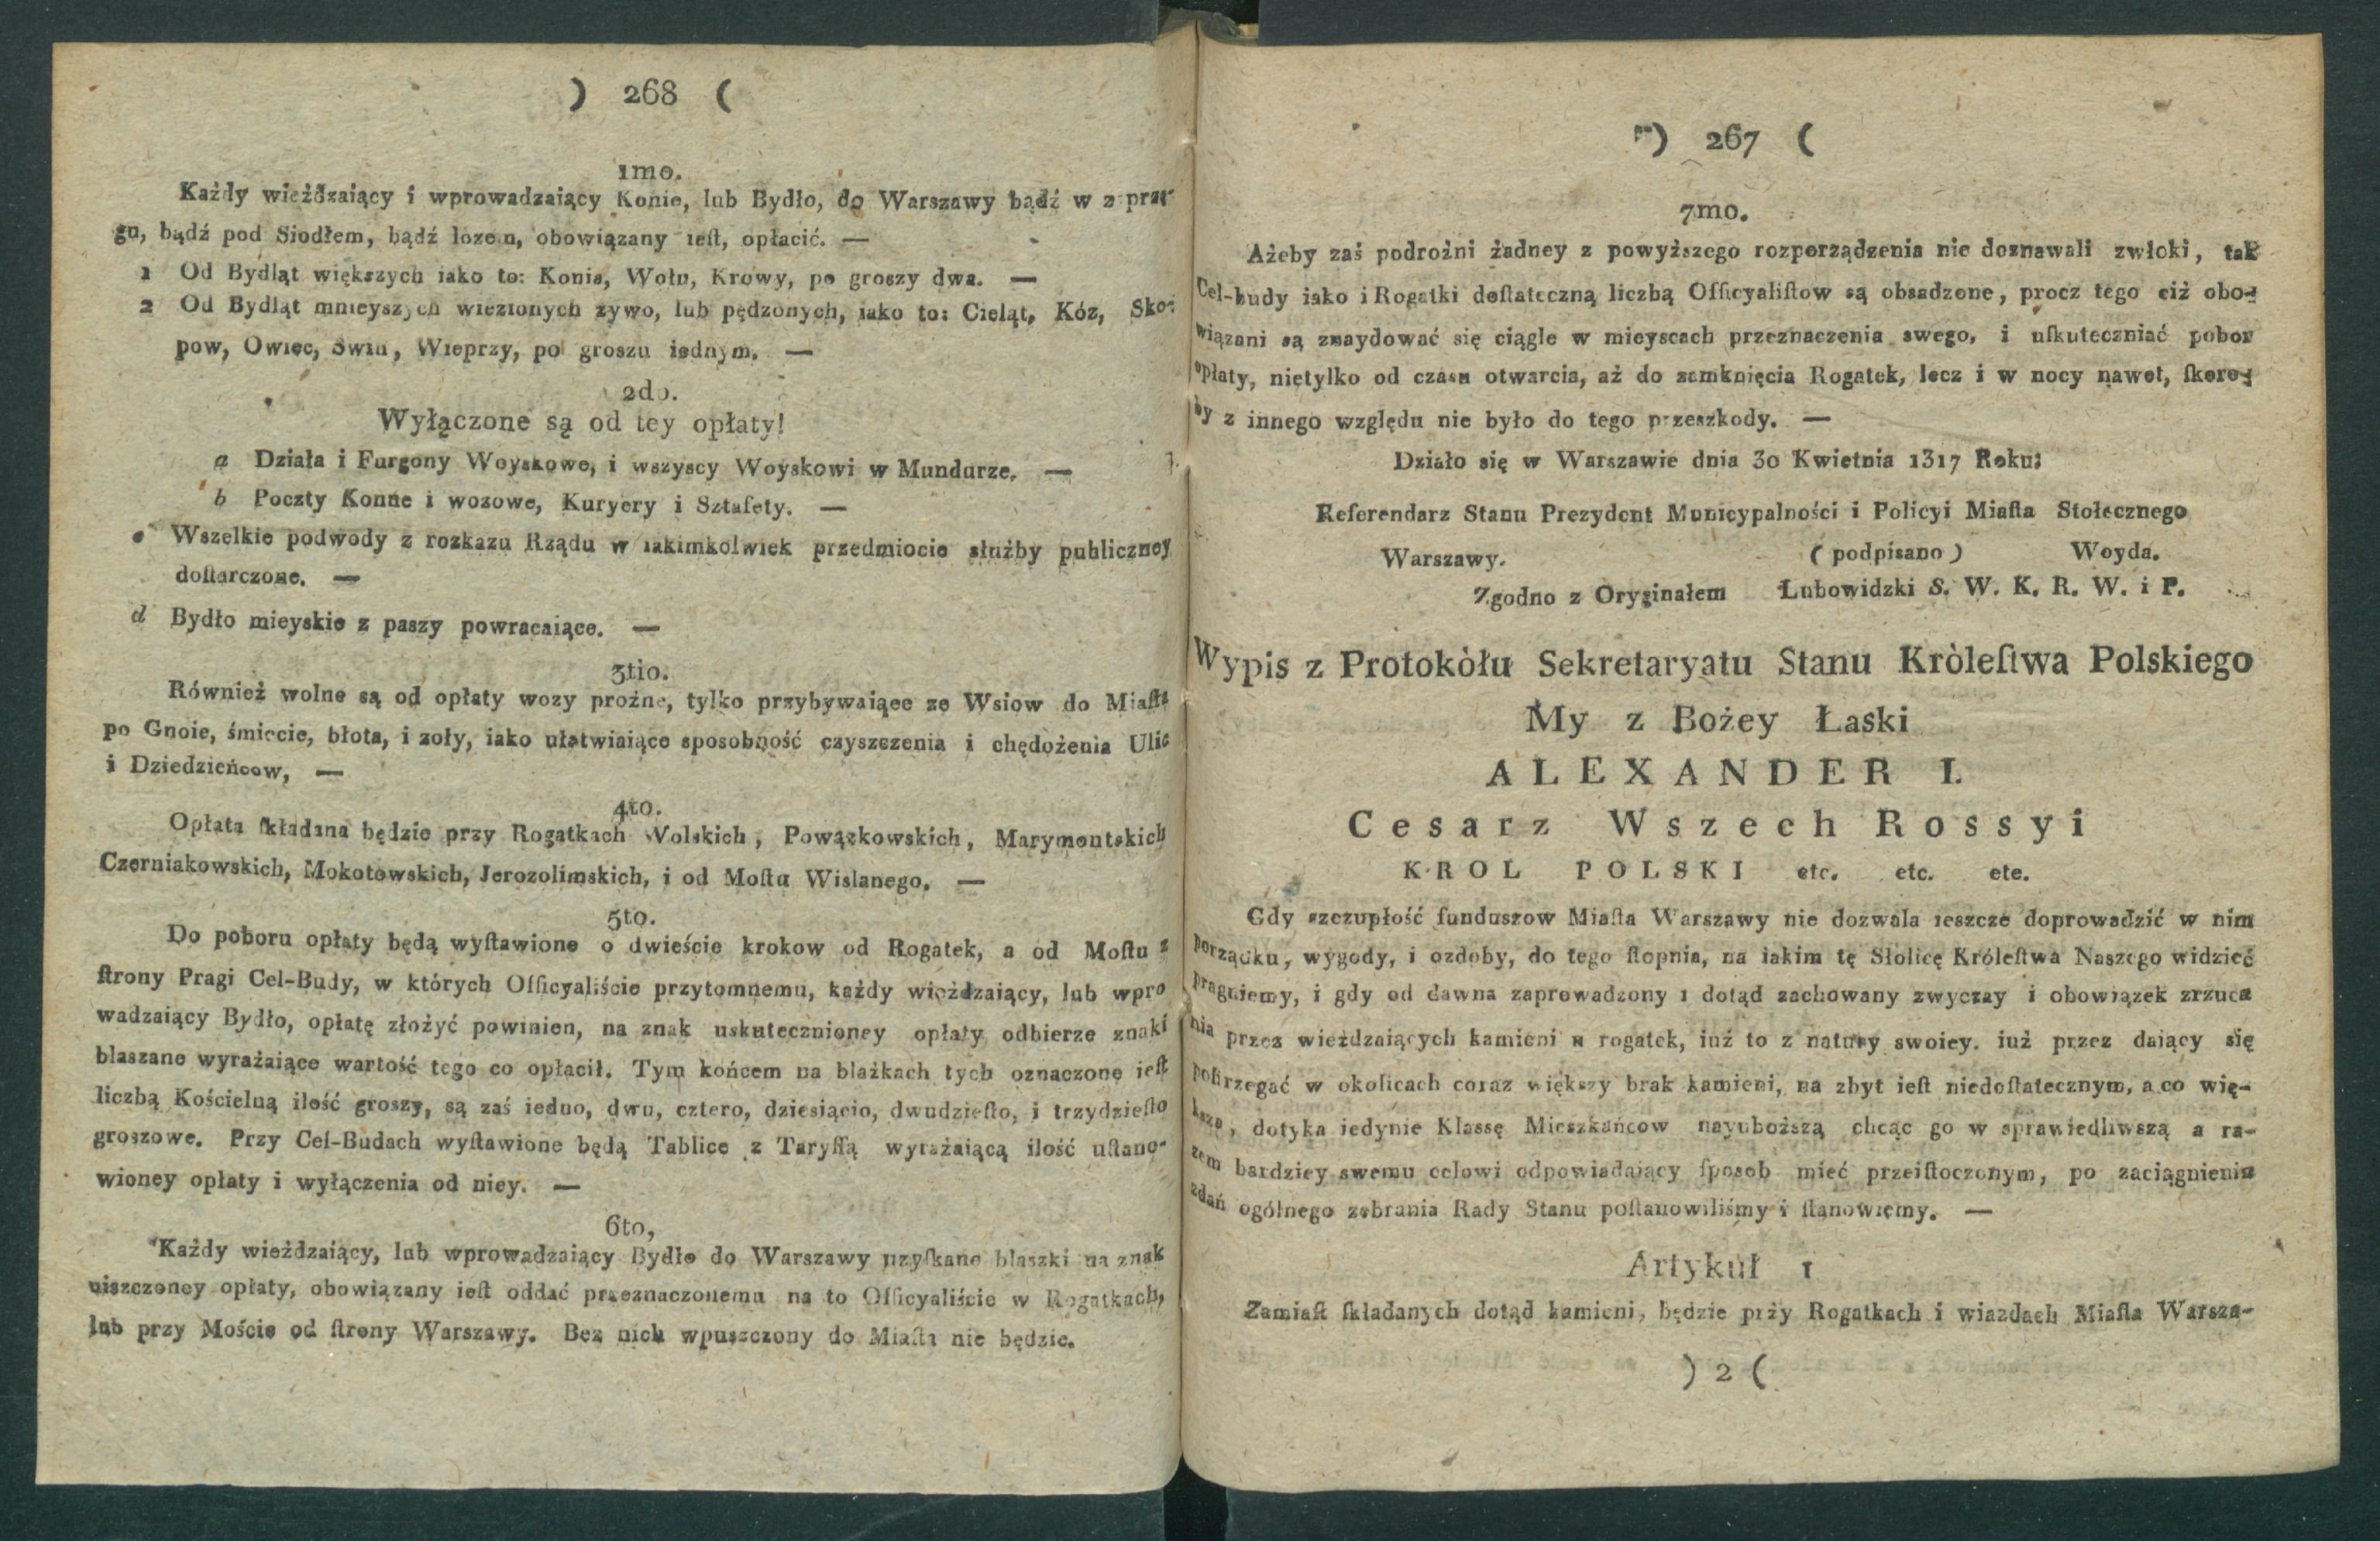 ) 268 (
1mo.
Każdy wieżdzaiący i wprowadzaiący Konie, lub Bydło, do Warszawy bądź w z przę-
gu, bądź pod Siodłem, bądź lozem, obowiązany ieſt, opłacić. —
1 Od Bydląt większych iako to: Konia, Wołu, Krowy, po groszy dwa. —
2 Od Bydląt mnieyszych wiezionych żywo, lub pędzonych, iako to: Cieląt, Kóz, Sko-
pow, Owiec, Swiń, Wieprzy, po groszu iednym. —
2do.
Wyłączone są od tey opłaty!
a Działa i Furgony Woyskowe, i wszyscy Woyskowi w Mundurze. —
b Poczty Konne i wozowe, Kuryery i Sztafety. —
c Wszelkie podwody z rozkazu Rządu w iakimkolwiek przedmiocie służby publiczney
doſtarczone. —
d Bydło mieyskie z paszy powracaiące. —
3tio.
Również wolne są od opłaty wozy prożne, tylko przybywaiące ze Wsiow do Miaſta
po Gnoie, śmiecie, błota, i zoły, iako ułatwiaiące sposobność czyszczenia i chędożenia Ulic
i Dziedzieńcow, —
4to.
Opłata ſkładana będzie przy Rogatkach Wolskich, Powązkowskich, Marymontskich
Czerniakowskich, Mokotowskich, Jerozolimskich, i od Moſtu Wislanego. —
5to.
Do poboru opłaty będą wyſtawione o dwieście krokow od Rogatek, a od Moſtu z
ſtrony Pragi Cel-Budy, w których Officyaliście przytomnemu, każdy wieżdzaiący, lub wpro
wadzaiący Bydło, opłatę złożyć powinien, na znak uskutecznioney opłaty odbierze znaki
blaszane wyrażaiące wartość tego co opłacił. Tym końcem na blażkach tych oznaczone ieſt
liczbą Kościelną ilość groszy, są zaś iedno, dwu, cztero, dziesiącio, dwudzieſto, i trzydzieſto
groszowe. Przy Cel-Budach wyſtawione będą Tablice z Taryffą wyrażaiącą ilość uſtano-
wioney opłaty i wyłączenia od niey. —
6to,
Każdy wieżdzaiący, lub wprowadzaiący Bydło do Warszawy uzyſkane blaszki na znak
uiszczoney opłaty, obowiązany ieſt oddać przeznaczonemu na to Officyaliście w Rogatkach,
lub przy Moście od ſtrony Warszawy. Bez nich wpuszczony do Miaſta nie będzie.
) 267 (
7mo.
Ażeby zaś podrożni żadney z powyższego rozporządzenia nie doznawali zwłoki, tak
Cel-budy iako i Rogatki doſtateczną liczbą Officyaliſtow są obsadzone, procz tego ciż obo-
wiązani są znaydować się ciągle w mieyscach przeznaczenia swego, i uſkuteczniać pobor
opłaty, nietylko od czasu otwarcia, aż do zamknięcia Rogatek, lecz i w nocy nawet, ſkoro-
by z innego względu nie było do tego przeszkody. —
Działo się w Warszawie dnia 30 Kwietnia 1317 Roku:
Referendarz Stanu Prezydent Municypalności i Policyi Miaſta Stołecznego
Warszawy. (podpisano) Woyda.
Zgodno z Oryginałem Łubowidzki S. W. K. R. W. i P.
Wypis z Protokòłu Sekretaryatu Stanu Kròleſtwa Polskiego
My z Bożey Łaski
ALEXANDER I.
Cesarz Wszech Rossyi
KROL POLSKI etc. etc. etc.
Gdy szczupłość funduszow Miaſta Warszawy nie dozwala ieszcze doprowadzić w nim
porządku, wygody, i ozdoby, do tego ſtopnia, na iakim tę Słolicę Króleſtwa Naszego widzieć
pragniemy, i gdy od dawna zaprowadzony i dotąd zachowany zwyczay i obowiązek zrzuca
nia przez wieżdzaiących kamieni u rogatek, iuż to z natury swoiey. iuż przez daiący się
poſtrzegać w okolicach coraz większy brak kamieni, na zbyt ieſt niedoſtatecznym, a co wię-
ksze, dotyka iedynie Klassę Mieszkańcow nayuboższą chcąc go w sprawiedliwszą a ra-
zem bardziey swemu celowi odpowiadaiący ſposob mieć przeiſtoczonym, po zaciągnieniu
zdań ogólnego zebrania Rady Stanu poſtanowiliśmy i ſtanowiemy. —
Artykuł 1
Zamiaſt ſkładanych dotąd kamieni, będzie przy Rogatkach i wiazdach Miaſta Warsza-
) 2 (